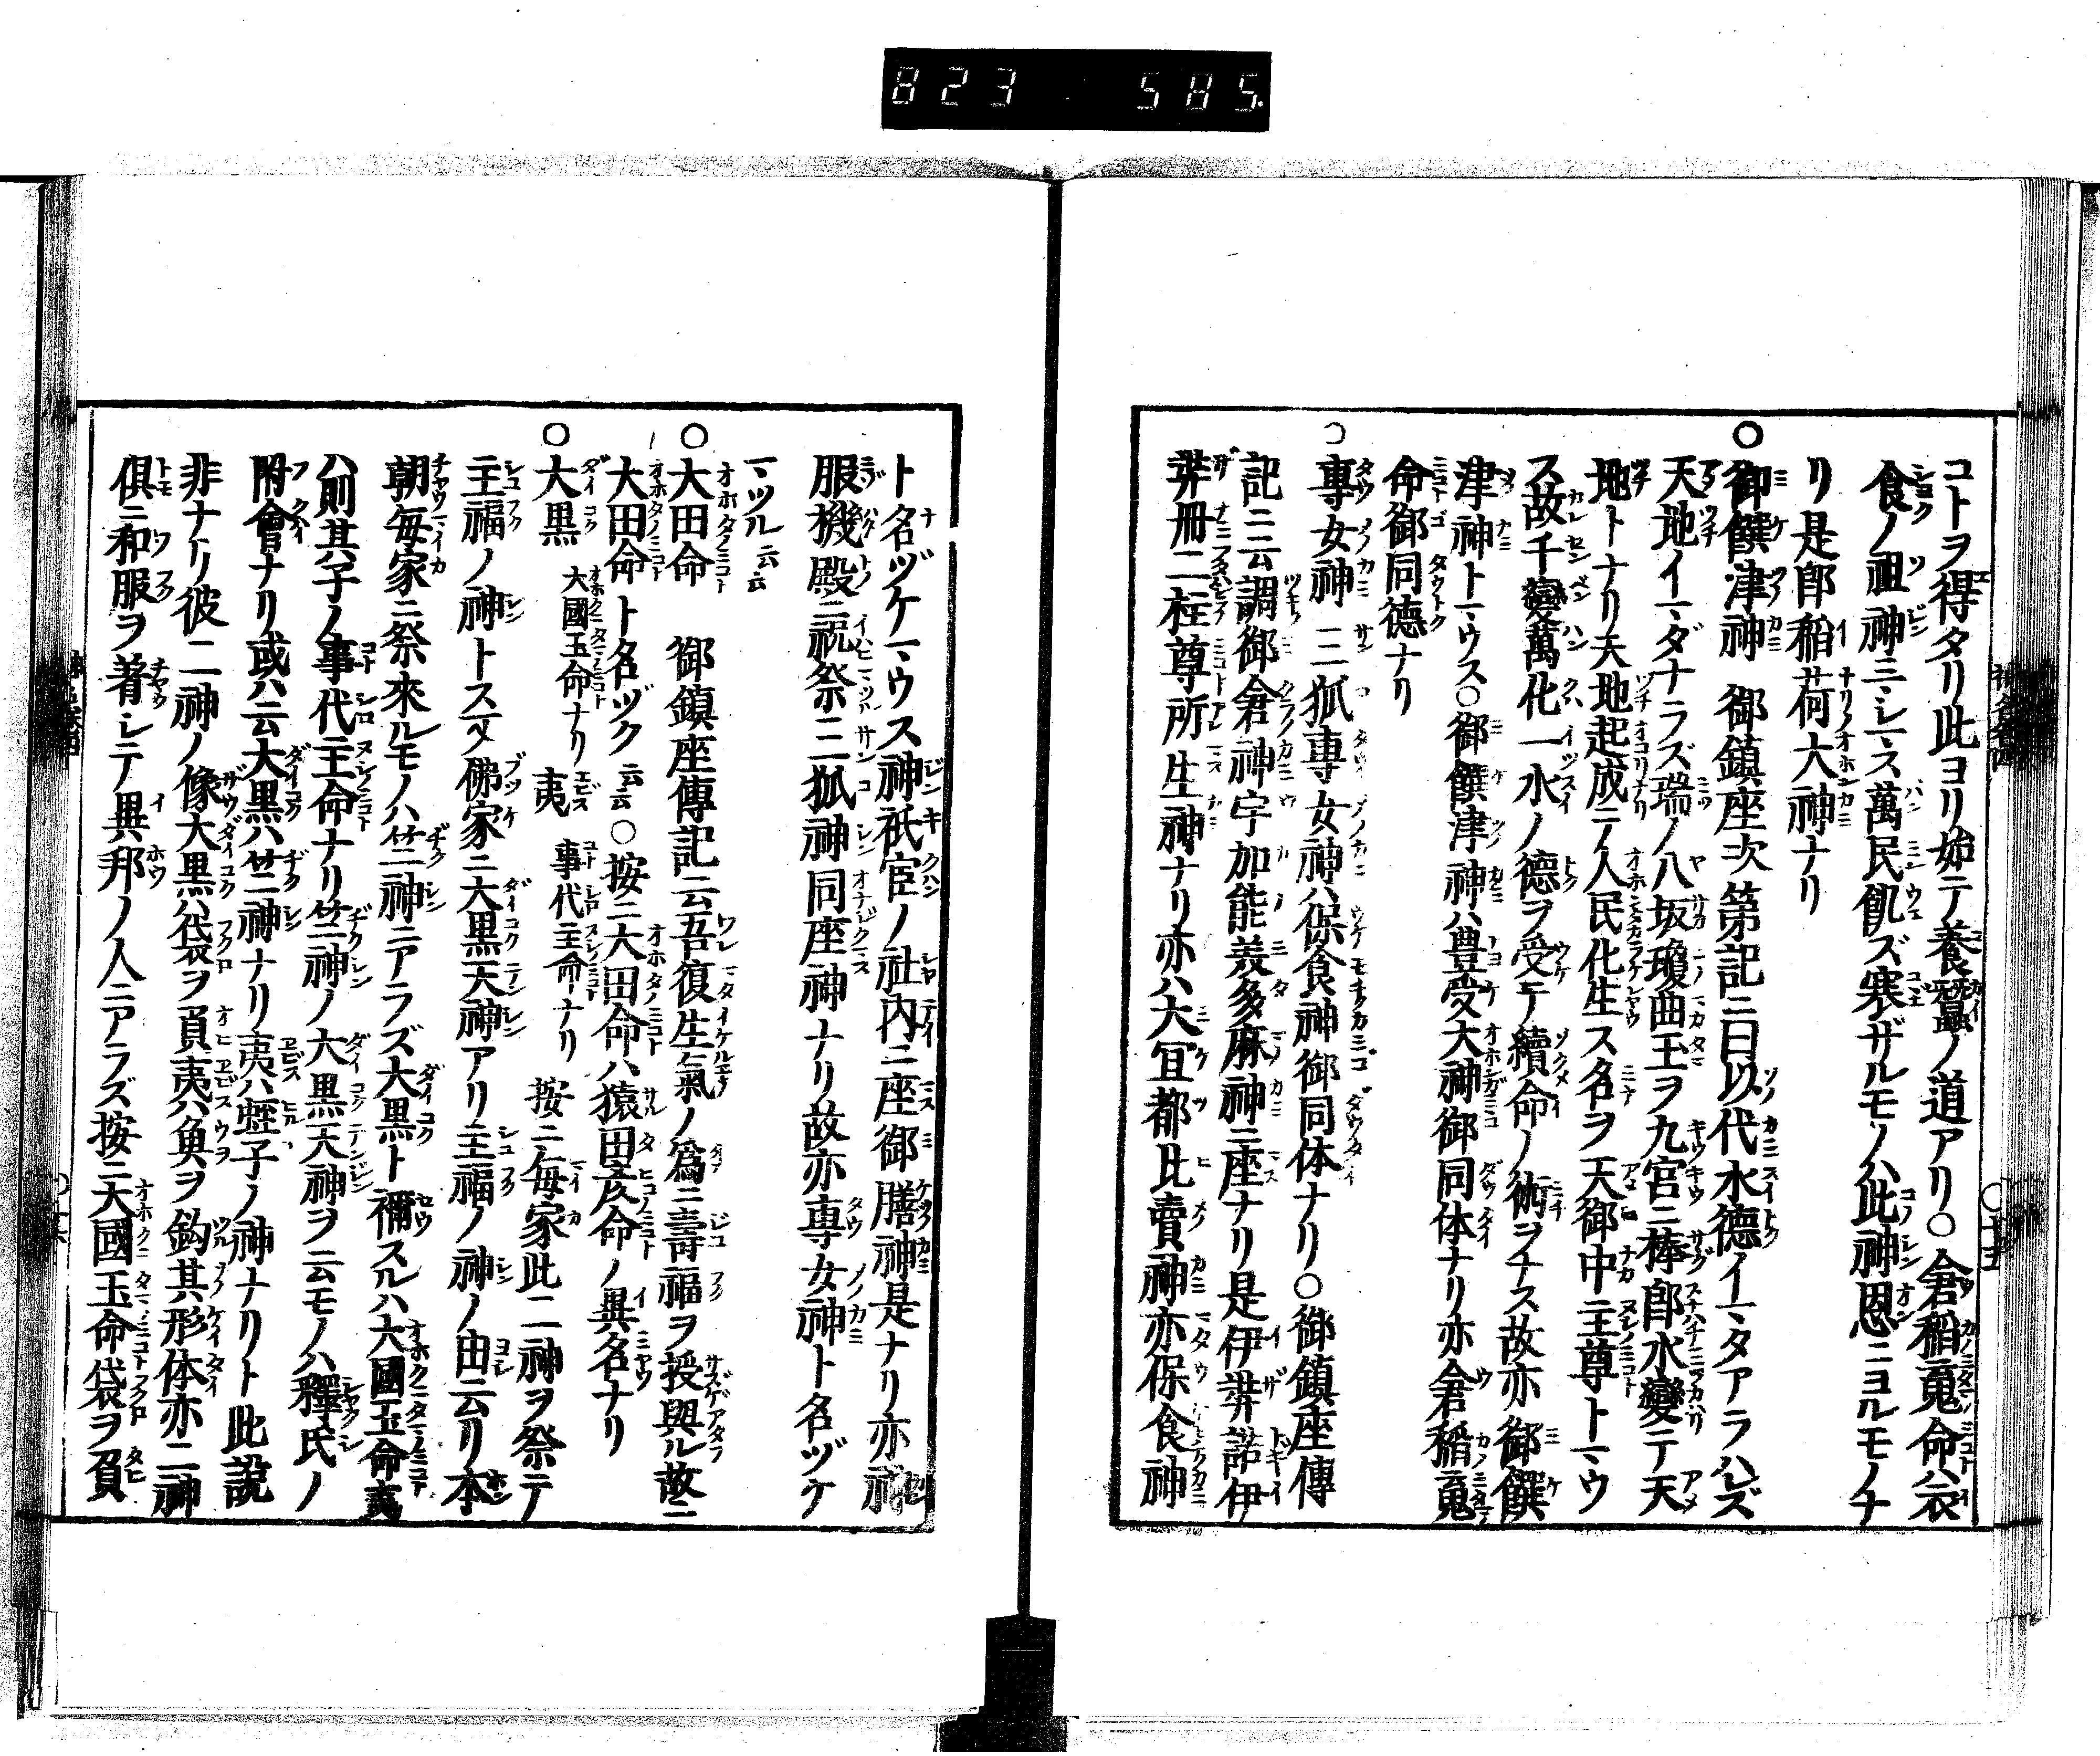 823 585.
コトヲ得タリ此ヨリ始テ養蠶ノ道アリ〇倉稲䰟命ハ衣
食ノ祖神ニシマス萬民飢ズ寒ザルモノハ此神恩ニヨルモノナ
リ是即稲荷大神ナリ
〇御饌津神 御鎮座次第記ニ曰以代水德イマタアラハレズ
天地イマダナラズ瑞ノ八坂瓊曲玉ヲ九宮ニ棒即水變テ天
地トナリ天地起成テ人民化生ス名ヲ天御中主尊トマウ
ス故千變萬化一水ノ德ヲ受テ續命ノ術ヲナス故亦御饌
津神トマウス〇御饌津神ハ豊受大神御同体ナリ亦倉稲䰟
命御同德ナリ
〇専女神 三狐専女神ハ保食神御同体ナリ〇御鎮座傳
記ニ云調御倉神宇加能美多麻神ニ座ナリ是伊弉諾伊
弉冊二柱尊所生神ナリ亦ハ大宜都比賣神亦保食神
ト名ヅケマウス神祇官ノ社内ニ座御膳神是ナリ亦神
服機殿ニ祝祭三狐神同座神ナリ故亦専女神ト名ヅケ
マツル云云
〇大田命 御鎮座傳記ニ云吾復生氣ノ爲ニ壽福ヲ授與ル故ニ
大田命ト名ヅク云云〇按ニ大田命ハ猿田彦命ノ異名ナリ
〇大黒 大國玉命ナリ 夷 事代主命ナリ 按ニ毎家此二神ヲ祭テ
主福ノ神トス又佛家ニ大黒天神アリ主福ノ神ノ由云リ本
朝毎家ニ祭來ルモノハ竺神ニアラズ大黒ト稱スルハ大國玉命夷
ハ則其子ノ事代主命ナリ竺神ノ大黒天神ヲ云モノハ釋氏ノ
附會ナリ或ハ云大黒ハ竺神ナリ夷ハ蛭子ノ神ナリト此説
非ナリ彼二神ノ像大黒ハ袋ヲ負夷ハ魚ヲ釣其形体亦二神
俱ニ和服ヲ着シテ異邦ノ人ニアラズ按ニ大國玉命袋ヲ負